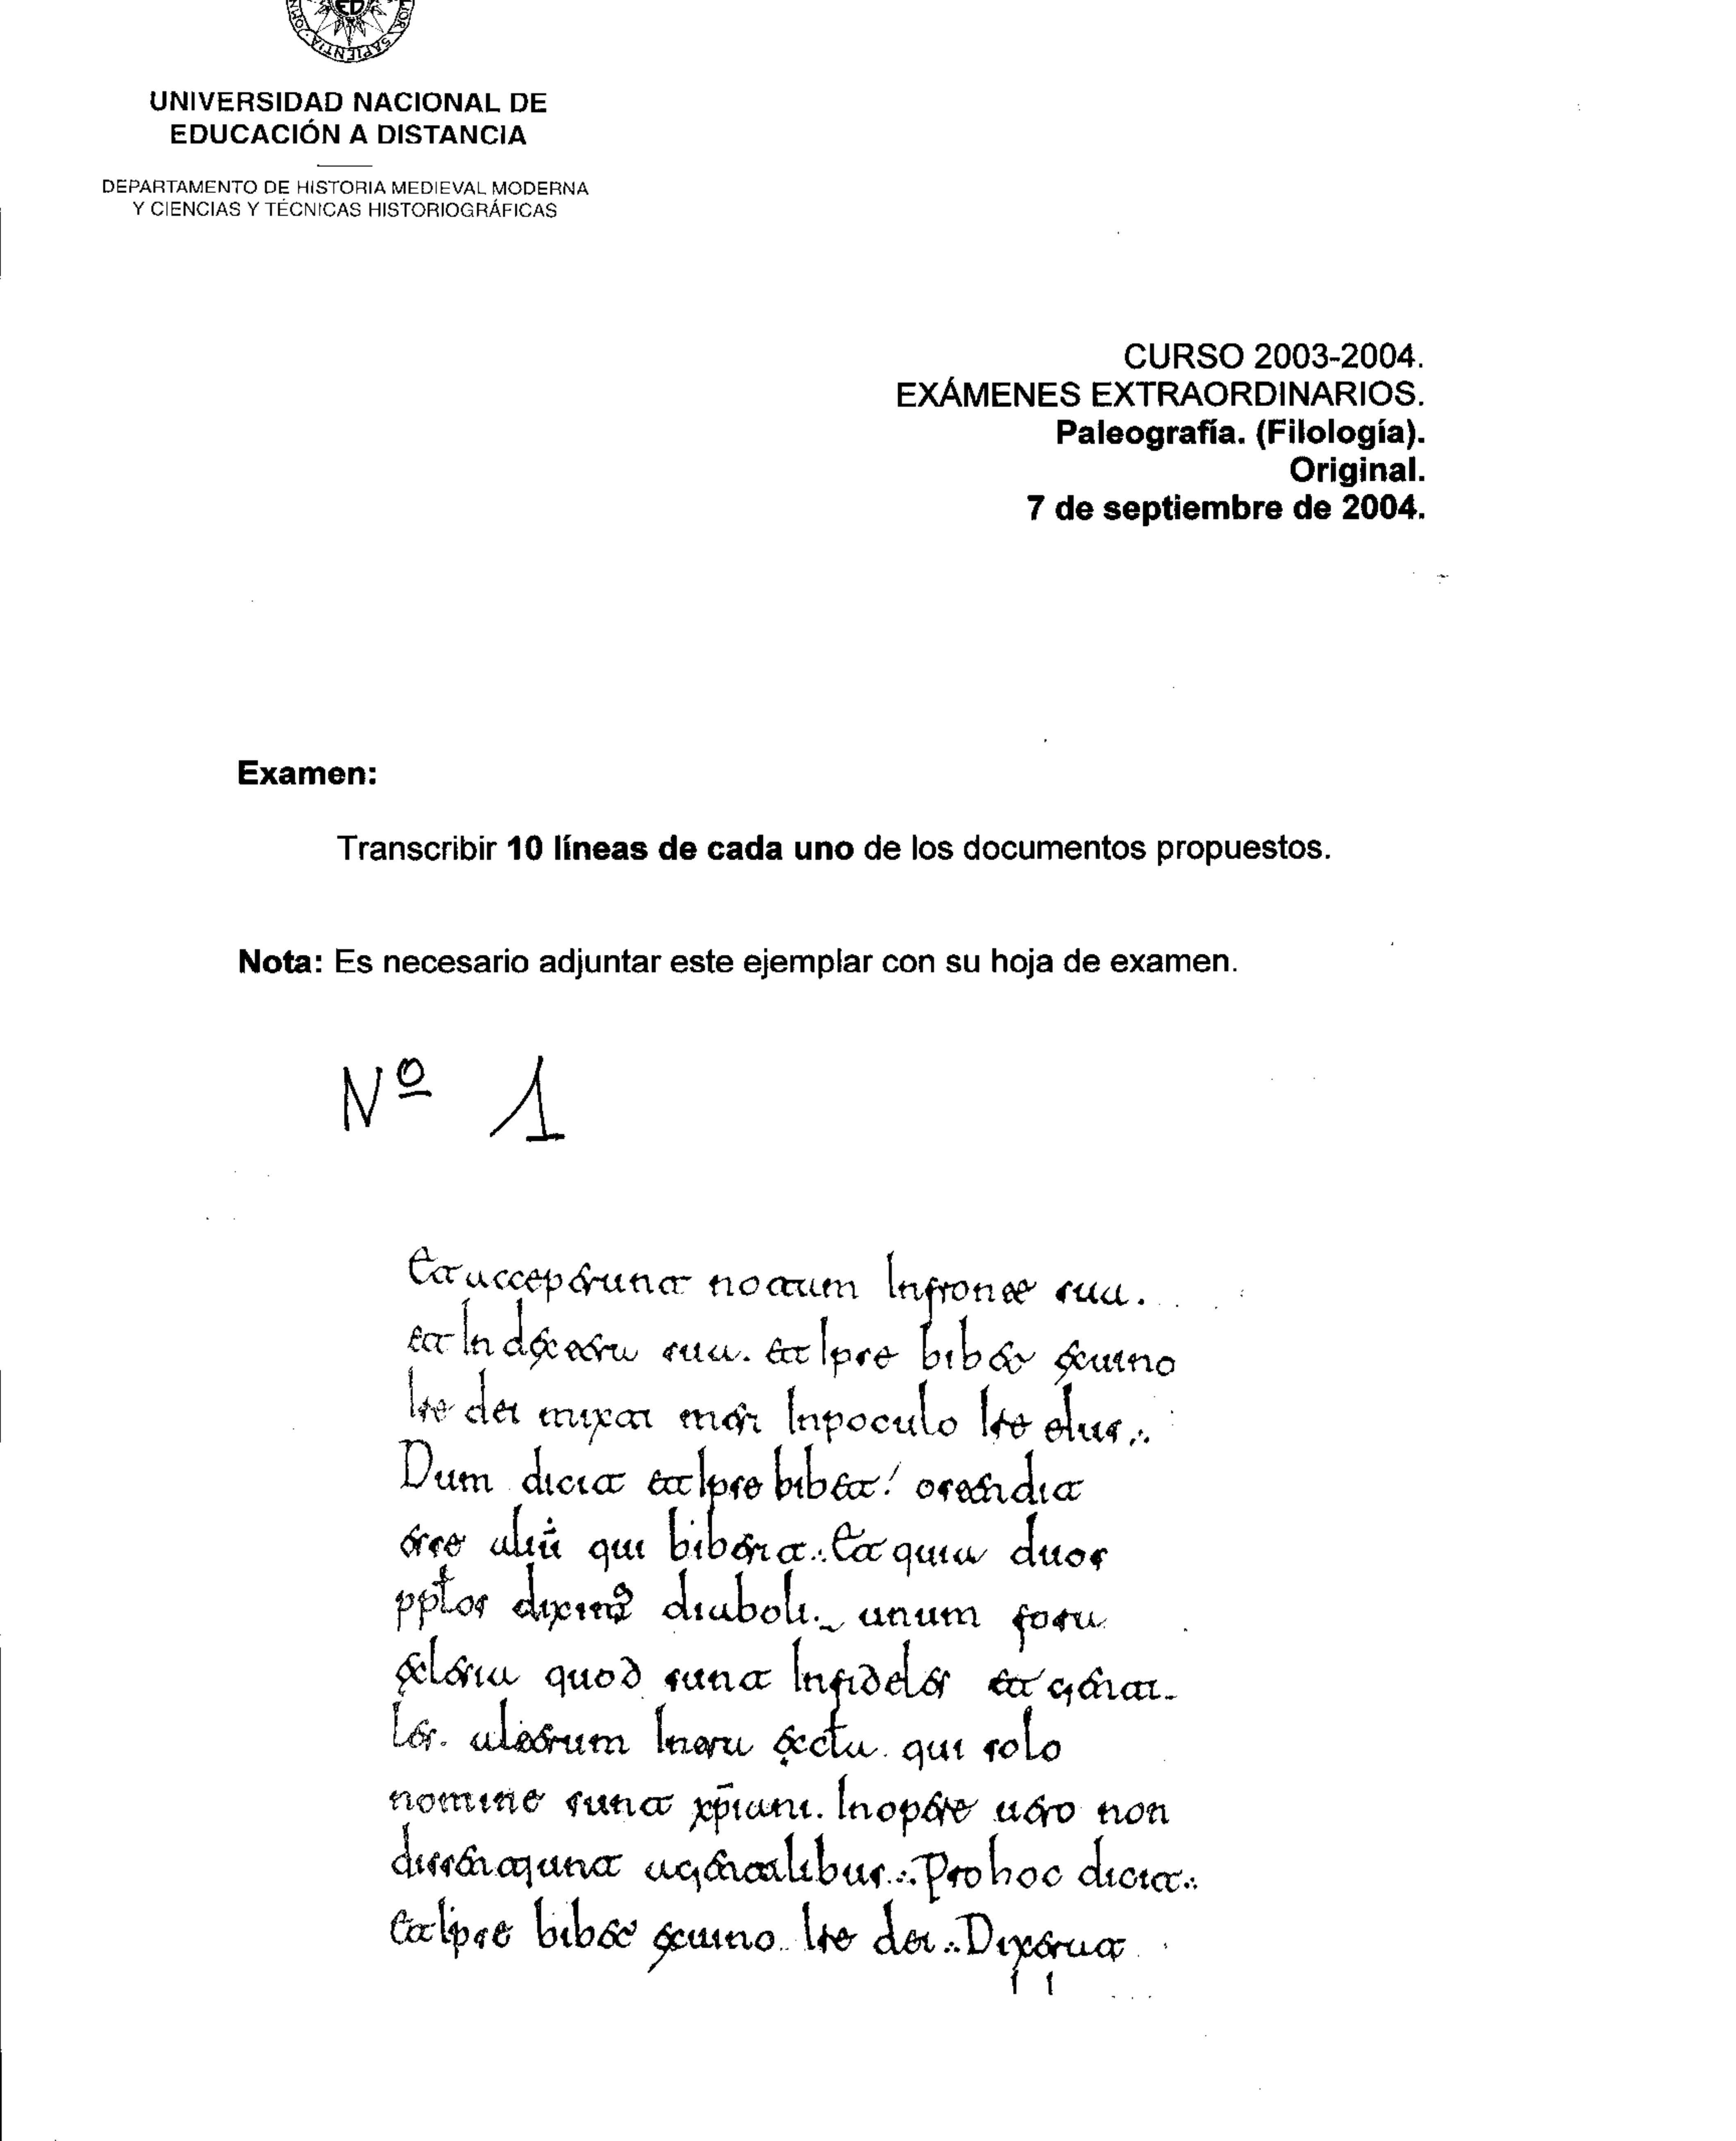 ED
LIOR SAPIENTIA · OMN
UNIVERSIDAD NACIONAL DE
EDUCACIÓN A DISTANCIA
DEPARTAMENTO DE HISTORIA MEDIEVAL MODERNA
Y CIENCIAS Y TÉCNICAS HISTORIOGRÁFICAS
CURSO 2003-2004.
EXÁMENES EXTRAORDINARIOS.
Paleografía. (Filología).
Original.
7 de septiembre de 2004.
Examen:
Transcribir 10 líneas de cada uno de los documentos propuestos.
Nota: Es necesario adjuntar este ejemplar con su hoja de examen.
Nº 1
Et acceperunt notam In fronte sua.
et In dextera sua. et Ipse bibet ex uino
Ire dei mixti meri In poculo Ire eius.
Dum dicit et Ipse bibet! ostendit
esse aliū qui biberit. Et quia duos
pplos diximꝰ diaboli. unum fora
eclesia quod sunt Infideles et genti
les. alterum Intra eccła. qui solo
nomine sunt xp̄iani. In opere uero non
dissentiunt a gentilibus. Pro hoc dicit.
Et Ipse bibet ex uino Ire dei. Dixerat